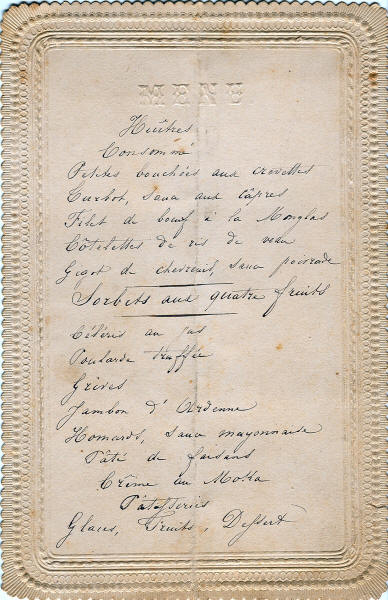 MENU
Huîtres
Consommé
Petites bouchées aux crevettes
Turbot, sauce aux câpres
Filet de bœuf à la Monglas
Côtelettes de ris de veau
Gigot de chevreuil, sauce poivrade
Sorbets aux quatre fruits
Céléris au jus
Poularde truffée
Grives
Jambon d'Ardenne
Homards, sauce mayonnaise
Pâté de faisans
Crême au Moka
Pâtisseries
Glaces, Fruits, Dessert